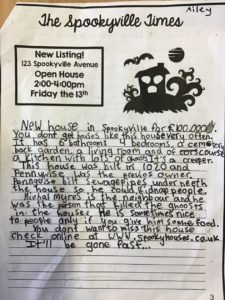 Ailey
The Spookyville Times
New Listing!
123 Spookyville Avenue
Open House
2:00-4:00pm
Friday the 13th
New house in Spookyville for £100,000.
You dont get houses like this house very often.
It has 6 bathrooms 4 bedrooms, a cemetery
back garden, a living room and of course
a kitchen with lots of ghosts it's a creeper.
This house was bilt in 1020 and
Pennywise was the previos owner.
Pennywise bilt sewage pipes under neeth
the house so he could kidnap people
Michal Myres is the neighbour and he
was the person that killed the ghosts
in the house. He is sometimes nice
to people only if you give him some food.
You dont want to miss this house
check online at www.spookyhouses.co.uk
It'll be gone fast...
3